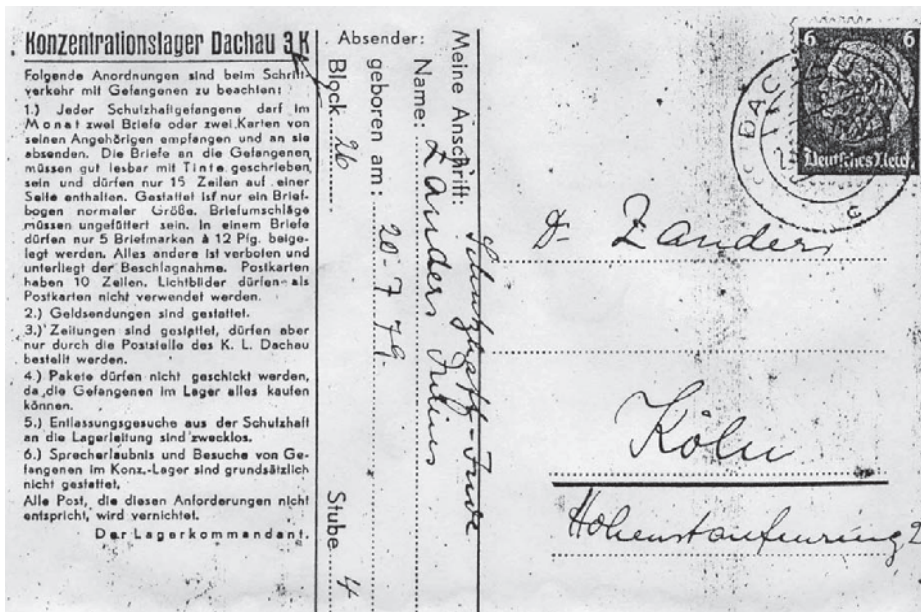 Konzentrationslager Dachau 3 K
Folgende Anordnungen sind beim Schrift-
verkehr mit Gefangenen zu beachten:
1.) Jeder Schutzhaftgefangene darf im
Monat zwei Briefe oder zwei Karten von
seinen Angehörigen empfangen und an sie
absenden. Die Briefe an die Gefangenen
müssen gut lesbar mit Tinte geschrieben
sein und dürfen nur 15 Zeilen auf einer
Seite enthalten. Gestattet ist nur ein Brief-
bogen normaler Größe. Briefumschläge
müssen ungefüttert sein. In einem Briefe
dürfen nur 5 Briefmarken à 12 Pfg. beige-
legt werden. Alles andere ist verboten und
unterliegt der Beschlagnahme. Postkarten
haben 10 Zeilen. Lichtbilder dürfen als
Postkarten nicht verwendet werden.
2.) Geldsendungen sind gestattet.
3.) Zeitungen sind gestattet, dürfen aber
nur durch die Poststelle des K. L. Dachau
bestellt werden.
4.) Pakete dürfen nicht geschickt werden,
da die Gefangenen im Lager alles kaufen
können.
5.) Entlassungsgesuche aus der Schutzhaft
an die Lagerleitung sind zwecklos.
6.) Sprecherlaubnis und Besuche von Ge-
fangenen im Konz.-Lager sind grundsätzlich
nicht gestattet.
Alle Post, die diesen Anforderungen nicht
entspricht, wird vernichtet.
Der Lagerkommandant.
Absender:
Meine Anschrift:
Schutzhaft-Jude
Name: Zander Julius
geboren am: 20-7 79.
Block 26 Stube 4
6 6
Deutsches Reich
DACHAU
Dr Zander
Köln
Hohenstaufenring 2